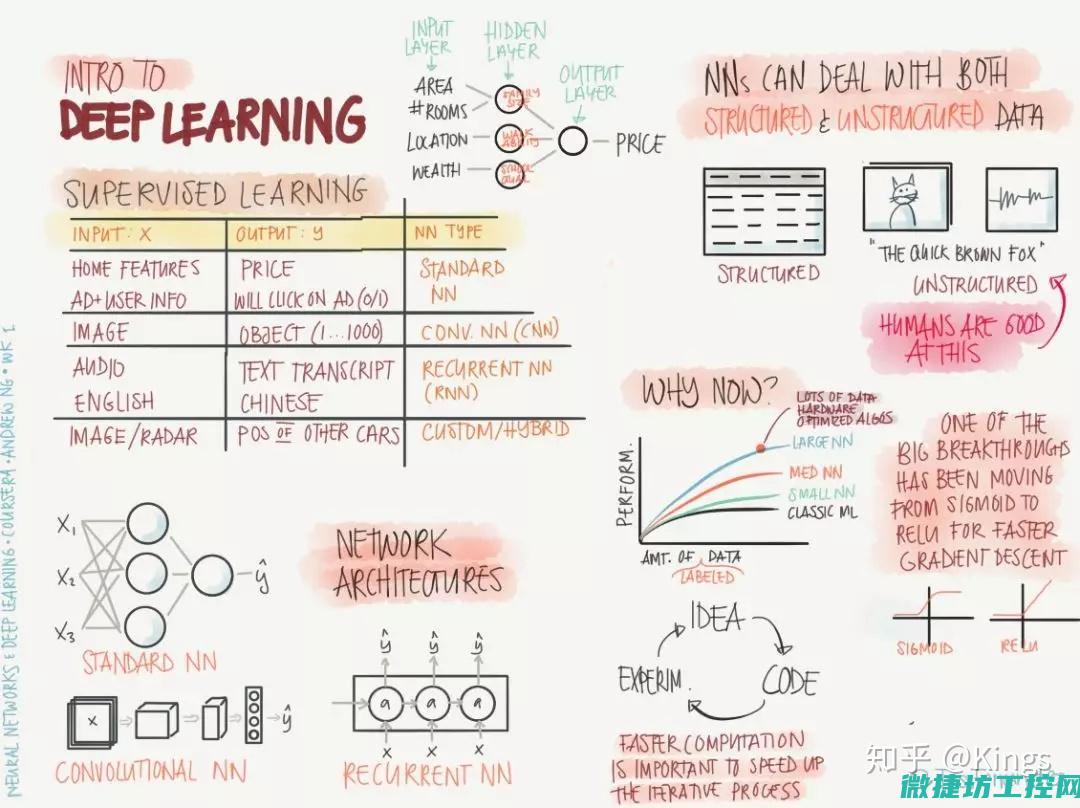 INTRO TO
DEEP LEARNING
INPUT
LAYER
HIDDEN
LAYER
OUTPUT
LAYER
AREA
#ROOMS
LOCATION
WEALTH
FAMILY
SIZE
WALK
ABILITY
SCHOOL
QUAL
PRICE
SUPERVISED LEARNING
INPUT: X OUTPUT: Y NN TYPE
HOME FEATURES PRICE STANDARD
AD+USER INFO WILL CLICK ON AD (0/1) NN
IMAGE OBJECT (1...1000) CONV. NN (CNN)
AUDIO TEXT TRANSCRIPT RECURRENT NN
ENGLISH CHINESE (RNN)
IMAGE/RADAR POS OF OTHER CARS CUSTOM/HYBRID
NNs CAN DEAL WITH BOTH
STRUCTURED & UNSTRUCTURED DATA
STRUCTURED
"THE QUICK BROWN FOX"
UNSTRUCTURED
HUMANS ARE GOOD
AT THIS
WHY NOW?
LOTS OF DATA
HARDWARE
OPTIMIZED ALGOS
LARGE NN
MED NN
SMALL NN
CLASSIC ML
PERFORM.
AMT. OF DATA
LABELED
ONE OF THE
BIG BREAKTHROUGHS
HAS BEEN MOVING
FROM SIGMOID TO
RELU FOR FASTER
GRADIENT DESCENT
SIGMOID
RELU
X₁
X₂
X₃
ŷ
STANDARD NN
X
ŷ
CONVOLUTIONAL NN
NETWORK
ARCHITECTURES
ŷ ŷ ŷ
a a a
X X X
RECURRENT NN
IDEA
CODE
EXPERIM.
FASTER COMPUTATION
IS IMPORTANT TO SPEED UP
THE ITERATIVE PROCESS
NEURAL NETWORKS & DEEP LEARNING • COURSERA • ANDREW NG • WK 1
知乎 @Kings
微捷坊工控网